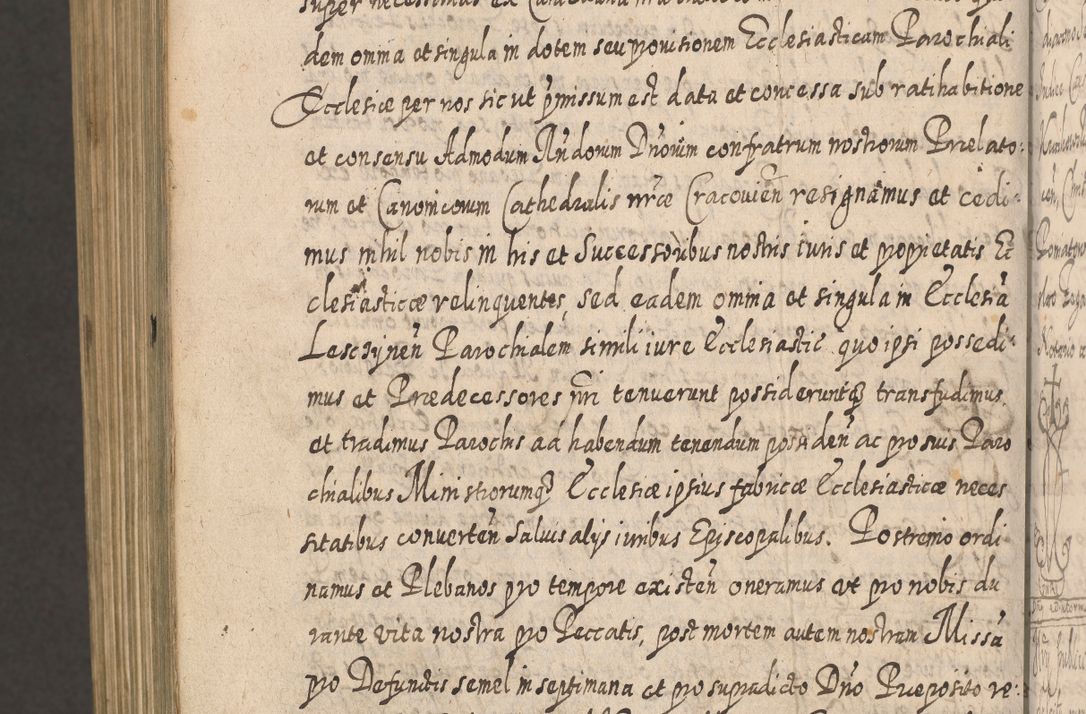 super necessimus ex
dem omnia et singula in dotem seu provisionem Ecclesiasticam Parochiali
Ecclesiæ per nos sic ut pmissum est data et concessa sub ratihabitione
et consensu Admodum Rndorum Dnorum confratrum nostrorum Prælato:
rum et Canonicorum Cathedralis nræ Cracovien resignamus et cedi:
mus nihil nobis in his et Successoribus nostris iuris et proprietatis Ec
clesiasticæ relinquentes, sed eadem omnia et singula in Ecclesia
Lesczynen Parochialem simili iure Ecclesiastic quo ipsi possedi:
mus et Prædecessores nri tenuerunt possideruntq transfudimus
et tradimus Parochis ad habendum tenendum possiden ac pro suis Paro
chialibus Ministrorumq Ecclesiæ ipsius fabricæ Ecclesiasticæ neces
sitatibus converten salvis alijs iuribus Episcopalibus. Postremo ordi
namus et Plebanos pro tempore existen oneramus ut pro nobis du
rante vita nostra pro Peccatis, post mortem autem nostram Missa
pro Defunctis semel in septimana et pro supradicto Dno Præposito re: